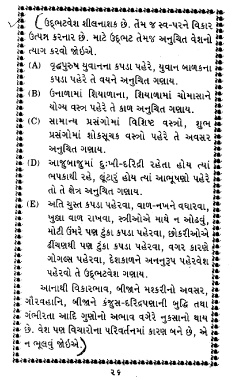 ઉદ્દભટવેશ શીલનાશક છે. તેમ જ સ્વ-પરને વિકાર
ઉત્પન્ન કરનાર છે. માટે ઉદ્દભટ તેમજ અનુચિત વેશનો
ત્યાગ કરવો જોઇએ.
(A) વૃદ્ધપુરુષ યુવાનના કપડા પહેરે, યુવાન બાળકના
કપડા પહેરે તે વયને અનુચિત ગણાય.
(B) ઉનાળામાં શિયાળાના, શિયાળામાં ચોમાસાને
યોગ્ય વસ્ત્ર પહેરે તે કાળ અનુચિત ગણાય.
(C) સામાન્ય પ્રસંગોમાં વિશિષ્ટ વસ્ત્રો, શુભ
પ્રસંગોમાં શોકસૂચક વસ્ત્રો પહેરે તે અવસર
અનુચિત ગણાય.
(D) આજુબાજુમાં દુઃખી-દરિદ્રી રહેતા હોય ત્યાં
ભપકાથી રહે, લૂંટારું હોય ત્યાં આભૂષણો પહેરે
તો તે ક્ષેત્ર અનુચિત ગણાય.
(E) અતિ ચુસ્ત કપડા પહેરવા, વાળ-નખને વધારવા,
ખુલા વાળ રાખવા, સ્ત્રીઓએ માથે ન ઓઢવું,
મોટી ઉંમરે પણ ટુંકા કપડા પહેરવા, છોકરીઓએ
ઢીંચણથી પણ ટુંકા કપડા પહેરવા, વગર કારણે
ગોગલ્સ પહેરવા, દેશકાળને અનનુરૂપ પહેરવેશ
પહેરવો તે ઉદ્દભટવેશ ગણાય.
આનાથી વિકારભાવ, બીજાને મશ્કરીનો અવસર,
ગૌરવહાનિ, બીજાને કંજુસ-દરિદ્રપણાની બુદ્ધિ તથા
ગંભીરતા આદિ ગુણોનો અભાવ વગેરે નુકસાનો થાય
છે. વેશ પણ વિચારોના પરિવર્તનમાં કારણ બને છે, એ
ન ભૂલવું જોઇએ.
૨૬